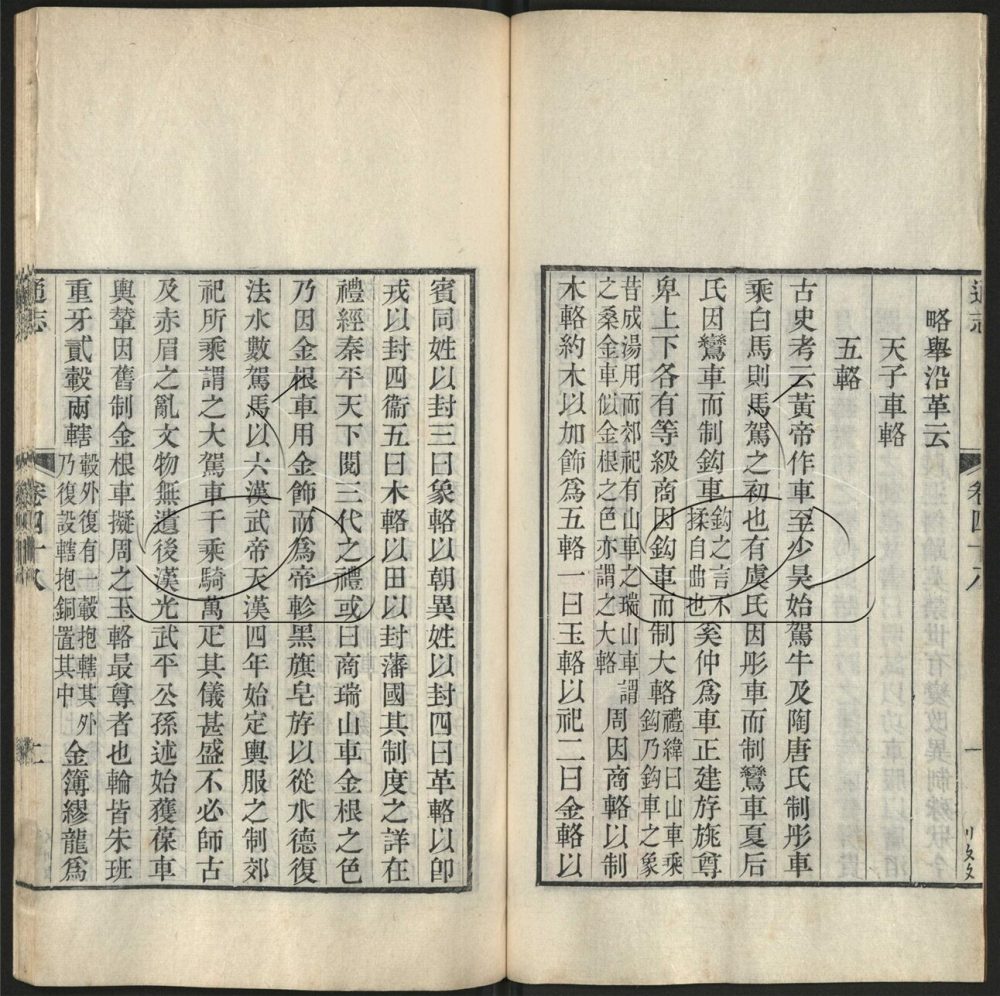 通志
卷四十八
一
略舉沿革云
天子車輅
五輅
古史考云黃帝作車至少昊始駕牛及陶唐氏制彤車
乘白馬則馬駕之初也有虞氏因彤車而制鸞車夏后
氏因鸞車而制鈎車鈎之言不揉自曲也奚仲爲車正建斿旐尊
卑上下各有等級商因鈎車而制大輅禮緯曰山車乘鈎乃鈎車之象
昔成湯用而郊祀有山車之瑞山車謂之桑金車似金根之色亦謂之大輅周因商輅以制
木輅約木以加飾爲五輅一曰玉輅以祀二曰金輅以
賓同姓以封三曰象輅以朝異姓以封四曰革輅以卽
戎以封四衞五曰木輅以田以封藩國其制度之詳在
禮經秦平天下閱三代之禮或曰商瑞山車金根之色
乃因金根車用金飾而爲帝軫黑旗皂斿以從水德復
法水數駕馬以六漢武帝天漢四年始定輿服之制郊
祀所乘謂之大駕車千乘騎萬疋其儀甚盛不必師古
及赤眉之亂文物無遺後漢光武平公孫述始獲葆車
輿輦因舊制金根車擬周之玉輅最尊者也輪皆朱班
重牙貳轂兩轄轂外復有一轂抱轄其外乃復設轄抱銅置其中金簿繆龍爲
通志
卷四十八